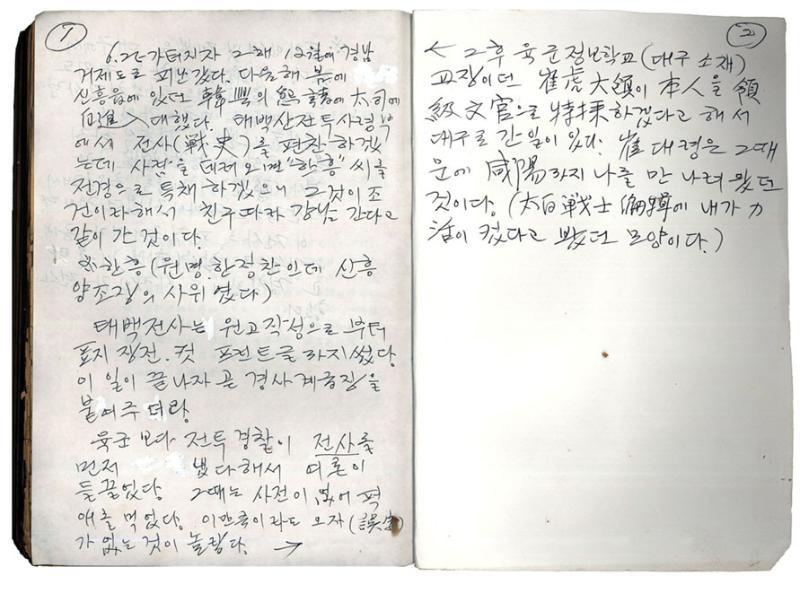 ①
6.25가 터지자 그해 12월에 경남
거제도로 피난갔다. 다음해 봄에
산흥읍에 있던 韓興의 太司에
대했다. 태백산전투사령부
에서 전사(戦史)를 편찬하겠
는데 사정을 데려오면 "한흥"씨를
전경으로 특채하겠으니 그것이 조
건이라해서 친구따라 강남 간다고
같이 간 것이다.
※한흥 (원명.한정찬인데 산흥
양조장의 사위였다)
태백전사는 원고작성으로부터
표지장전. 컷 프린트글까지 썼다
이 일이 끝나자 곧 경사계급장을
붙여주더라.
육군보다 전투경찰이 전사를
먼저 냈다해서 여론이
들끓었다 그때는 사전이 없어 퍽
애를 먹었다. 이만큼이라도 오자(誤字)
가 없는 것이 놀랍다. →
②
← 그후 육군정보학교(대구 소재)
교장이던 崔虎大領이 本人을 領
級文官으로 特採하겠다고 해서
대구로 간일이 있다. 崔대령은 그때
문에 咸陽까지 나를 만나러 왔던
것이다. (太白戦士 編輯에 내가 力
活이 컸다고 봤던 모양이다.)